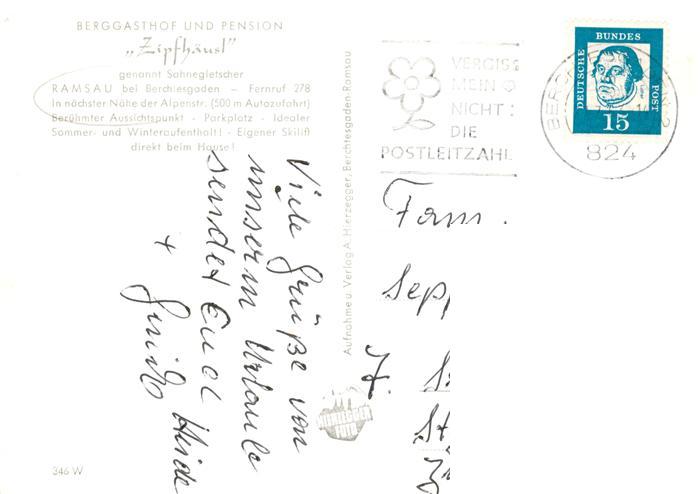 BERGGASTHOF UND PENSION
„Zipfhäusl"
genannt Sahnegletscher
RAMSAU bei Berchtesgaden – Fernruf 278
In nächster Nähe der Alpenstr. (500 m Autozufahrt)
Berühmter Aussichtspunkt - Parkplatz - Idealer
Sommer- und Winteraufenthalt! - Eigener Skilift
direkt beim Hause!
Viele Grüße von
unserm Urlaub
sendet Euch
Heide
+
346 W
Aufnahme u. Verlag A. Hierzegger, Berchtesgaden-Ramsau
HIERZEGGER
FOTO
VERGISS
MEIN
NICHT:
DIE
POSTLEITZAHL
DEUTSCHE
BUNDES
POST
15
824
Fam.
Sepp